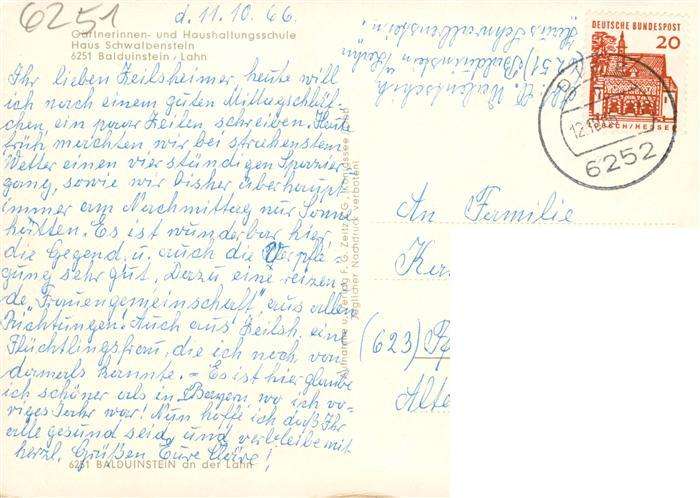 6251
d. 11.10.66.
Gärtnerinnen- und Haushaltungsschule
Haus Schwalbenstein
6251 Balduinstein / Lahn
Ihr lieben Zeilsheimer, heute will
ich nach einem guten Mittagsschläf-
chen ein paar Zeilen schreiben. Heute
früh machten wir bei strahlenstem
Wetter einen vierstündigen Spazier-
gang, sowie wir bisher überhaupt
immer am Nachmittag nur Sonne
hatten. Es ist wunderbar hier,
die Gegend u. auch die Verpfle-
gung sehr gut. Dazu eine reizen-
de "Frauengemeinschaft" aus allen
Richtungen. Auch aus Zeilsh. eine
Flüchtlingsfrau, die ich noch von
damals kannte. - Es ist hier glaube
ich schöner als in Bayern wo ich vo-
riges Jahr war! Nun hoffe ich daß Ihr
alle gesund seid, und verbleibe mit
herzl. Grüßen Eure Kläre!
6251 BALDUINSTEIN an der Lahn
Aufnahme u. Verlag F. G. Zeitz K.G., Königssee / Obb.
Jeglicher Nachdruck verboten!
6251) Balduinstein a. Lahn
"Haus Schwalbenstein"
DEUTSCHE BUNDESPOST
20
LORSCH/HESSEN
12.10.66
6252
An Familie
(623)
Alte